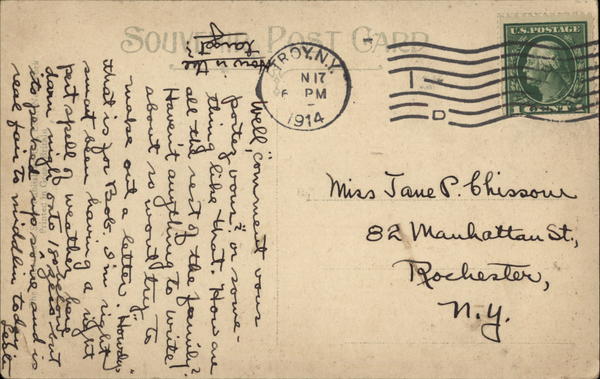 SOUVENIR POST CARD
TROY, N.Y.
N 17
6 PM
1914
1
D
U.S. POSTAGE
1 CENT 1
Miss Jane P. Chissom
82 Manhattan St.,
Rochester,
N.Y.
Well, "comment vous
portez vous?" or some-
thing like that. How are
all the rest of the family?
Haven't anything to write
about so won't try to
make out a letter. "Howdy"
that is for Bob. I'm right
smart been having a right
pert spell of weather, hang
down nigh onto 18° below
zero but
its perked up some and is
real fair to middlin today.
How is the